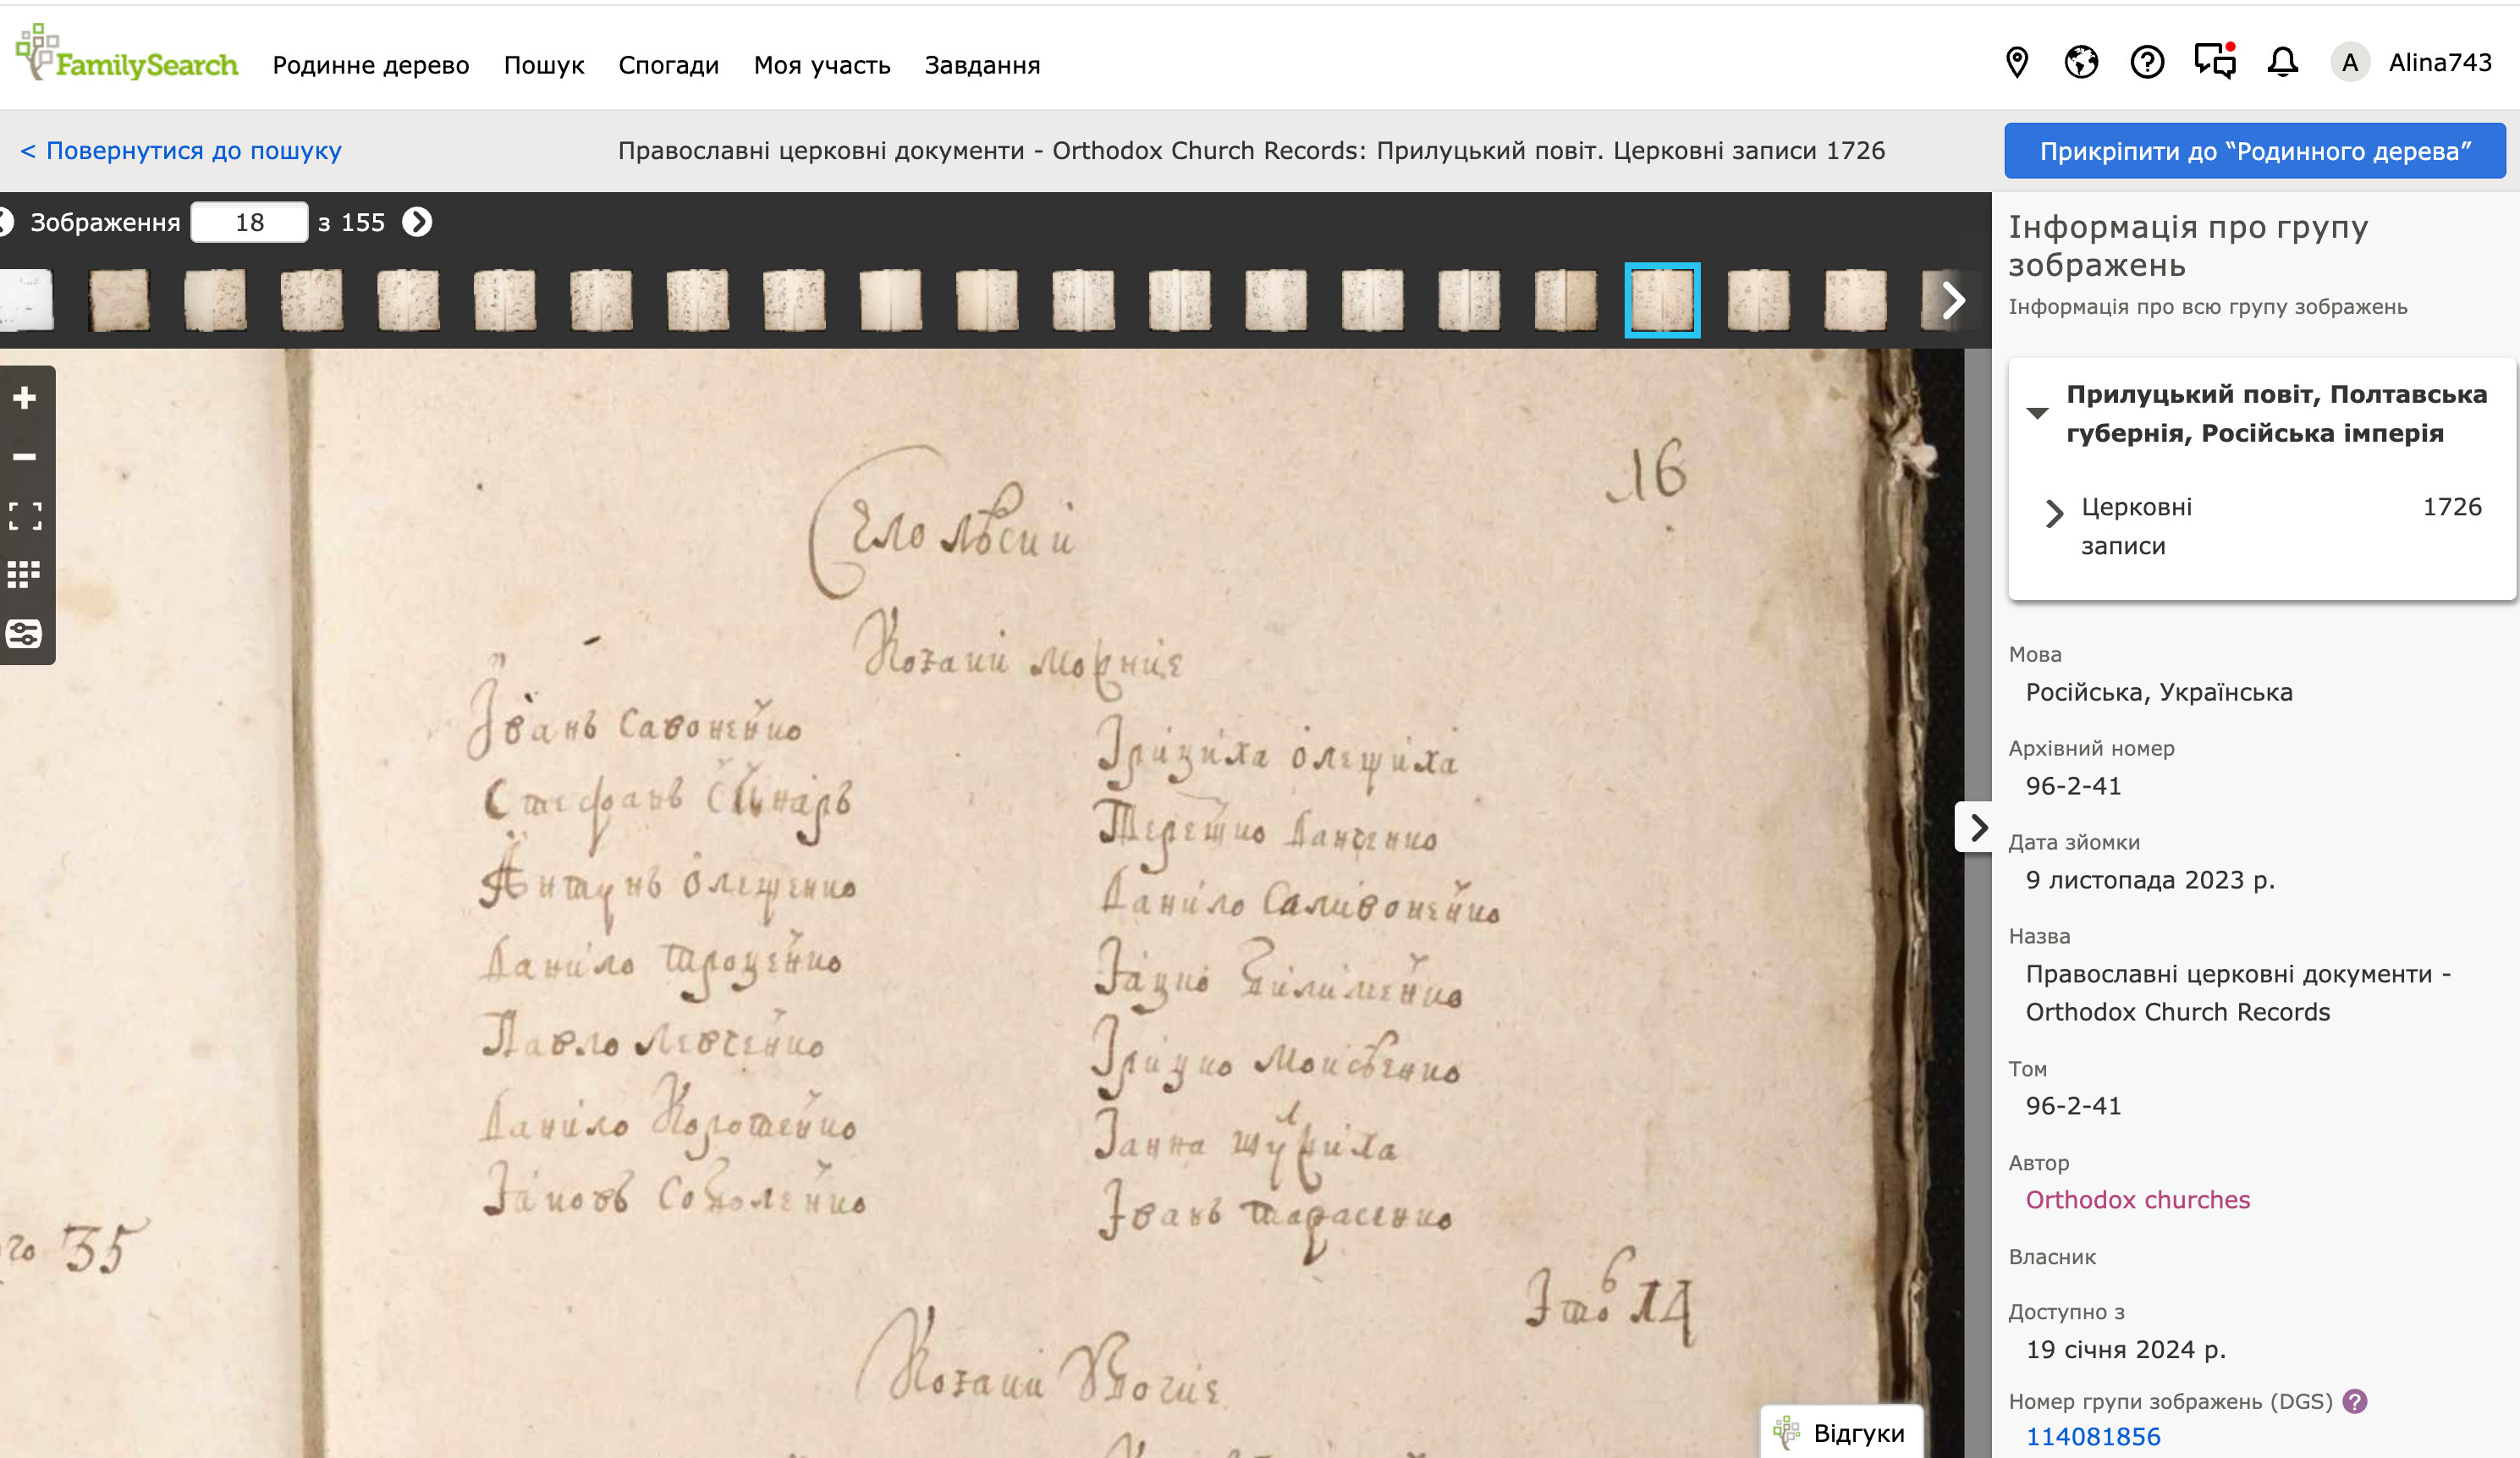 FamilySearch
Родинне дерево Пошук Спогади Моя участь Завдання
A Alina743
< Повернутися до пошуку
Православні церковні документи - Orthodox Church Records: Прилуцький повіт. Церковні записи 1726
Прикріпити до “Родинного дерева”
Зображення 18 з 155
16
Село Лѣски
Козаки можние
Іванъ Савоненко
Стефанъ
Антунъ Олещенко
Данило Троценко
Павло Левченко
Данило Коротенко
Яковъ Соболенко
Гріциха Олещиха
Терешко Данченко
Данило Саливоненко
Яцко Билименко
Гріцко Моисѣенко
Ганна
Іванъ Тарасенко
35
Того 14
Козаки Убогие
Інформація про групу зображень
Інформація про всю групу зображень
Прилуцький повіт, Полтавська губернія, Російська імперія
Церковні записи 1726
Мова
Російська, Українська
Архівний номер
96-2-41
Дата зйомки
9 листопада 2023 р.
Назва
Православні церковні документи - Orthodox Church Records
Том
96-2-41
Автор
Orthodox churches
Власник
Доступно з
19 січня 2024 р.
Номер групи зображень (DGS) ?
114081856
Відгуки